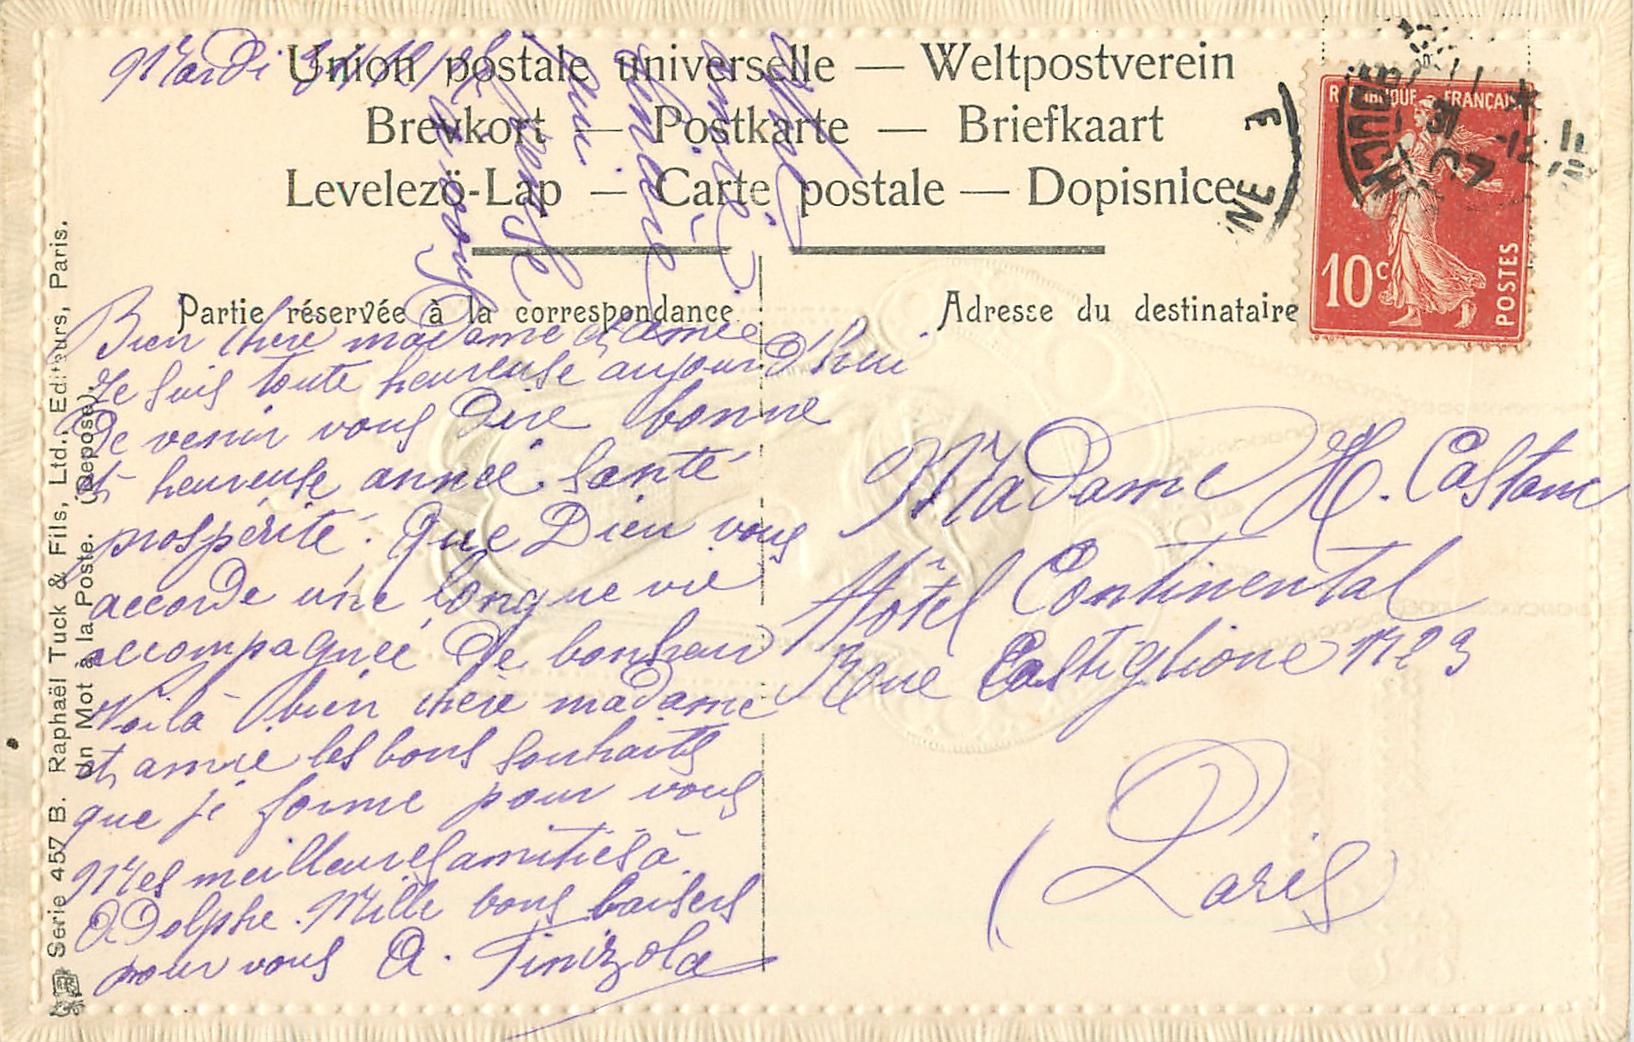 Mardi
Union postale universelle — Weltpostverein
Brevkort — Postkarte — Briefkaart
Levelezö-Lap — Carte postale — Dopisnice
Partie réservée à la correspondance
Adresse du destinataire
REPUBLIQUE FRANÇAISE
10c
POSTES
Bien chère madame et amie
Je suis toute heureuse aujourd'hui
de venir vous dire bonne
et heureuse année. Santé
prospérité. Que Dieu vous
accorde une longue vie
accompagnée de bonheur
Voilà bien chère madame
et amie les bons souhaits
que je forme pour vous
Mes meilleures amitiés à
Adolphe. Mille bons baisers
pour vous A.
Madame H. Castanc
Hôtel Continental
Rue Castiglione No 3
Paris
Serie 457 B. Raphaël Tuck & Fils, Ltd., Editeurs, Paris.
Un Mot à la Poste. (Déposé).